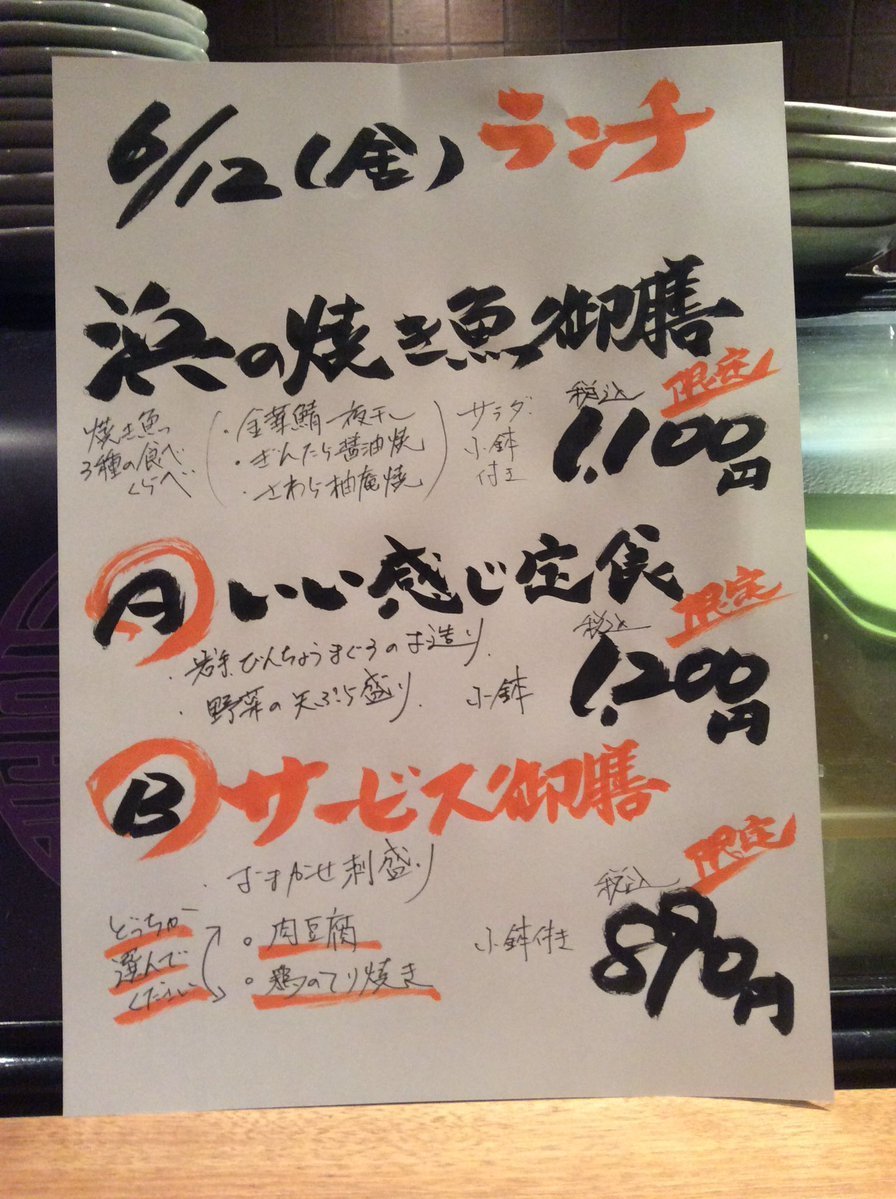 6/12(金)ランチ
浜の焼き魚御膳
限定
焼き魚
3種の食べ
くらべ
・金華鯖一夜干し
・ぎんだら醤油焼
・さわら柚庵焼
サラダ
小鉢
付き
税込
1,100円
A いい感じ定食
限定
・びんちょうまぐろのお造り
・野菜の天ぷら盛り 小鉢
税込
1,200円
B サービス御膳
限定
・おまかせ刺盛り
どっちか
選んで
ください
。肉豆腐
。鶏のてり焼き
小鉢付き
税込
890円